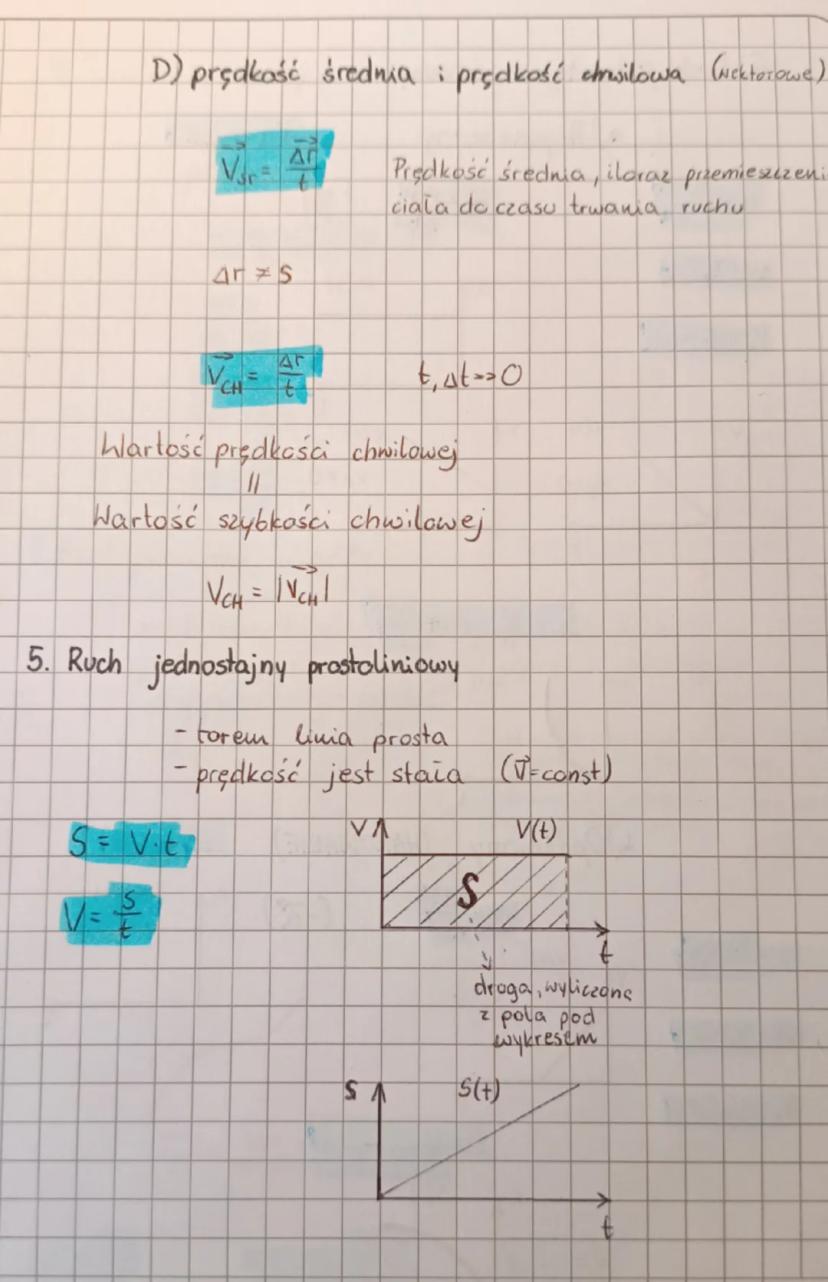 D) prędkość średnia i prędkość chwilowa (wektorowe)
V⃗śr = Δr⃗/t
Prędkość średnia, iloraz przemieszczeni
ciała do czasu trwania ruchu
Δr ≠ S
V⃗CH = Δr⃗/t t, Δt->0
Wartość prędkości chwilowej
||
Wartość szybkości chwilowej
VCH = |V⃗CH|
5. Ruch jednostajny prostoliniowy
- torem linia prosta
- prędkość jest stała (V⃗=const)
S = V·t
V = S/t
V V(t)
S
t
droga, wyliczona
z pola pod
wykresem
S S(t)
t